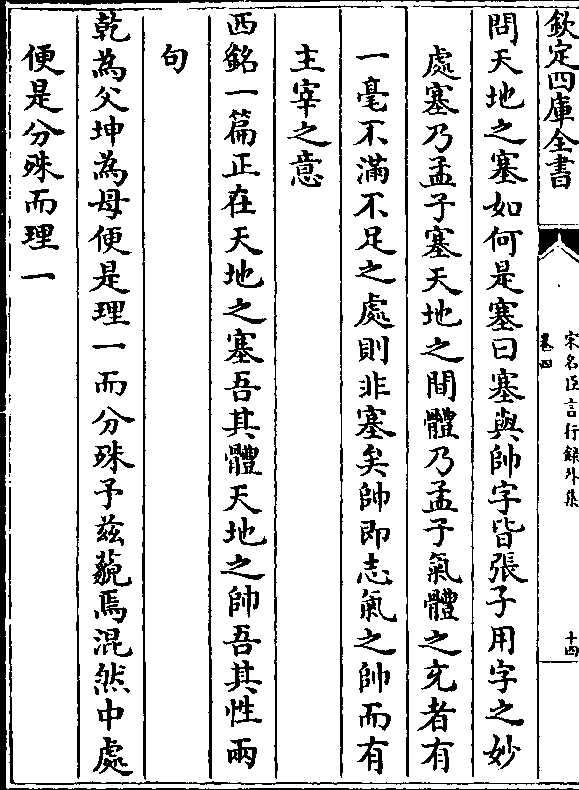 欽定四庫全書
宋名臣言行録外集
卷四
十四
問天地之塞如何是塞曰塞與帥字皆張子用字之妙
處塞乃孟子塞天地之間體乃孟子氣體之充者有
一毫不滿不足之處則非塞矣帥即志氣之帥而有
主宰之意
西銘一篇正在天地之塞吾其體天地之帥吾其性兩
句
乾為父坤為母便是理一而分殊予兹藐焉混然中處
便是分殊而理一